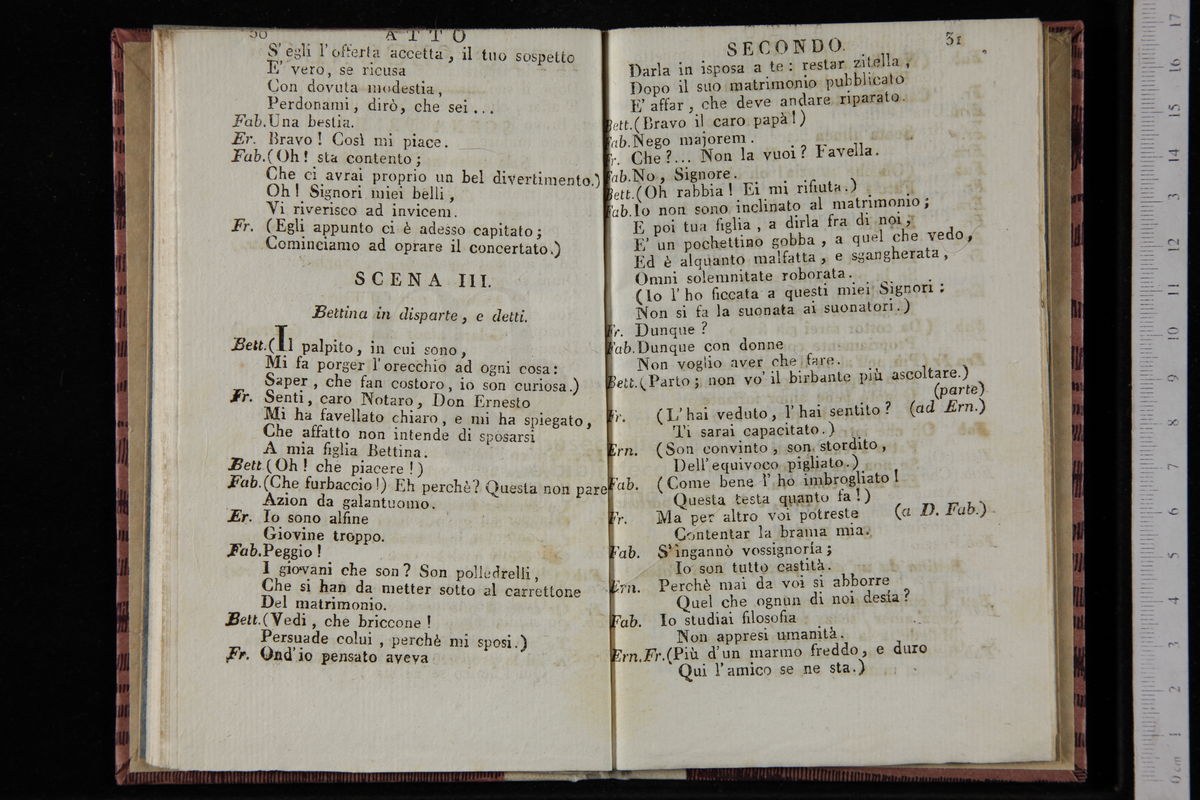 30 ATTO
S' egli l' offerta accetta, il tuo sospetto
E' vero, se ricusa
Con dovuta modestia,
Perdonami, dirò, che sei...
Fab. Una bestia.
Er. Bravo! Così mi piace.
Fab. (Oh! sta contento;
Che ci avrai proprio un bel divertimento.)
Oh! Signori miei belli,
Vi riverisco ad invicem.
Fr. (Egli appunto ci è adesso capitato;
Cominciamo ad oprare il concertato.)
SCENA III.
Bettina in disparte, e detti.
Bett. (Il palpito, in cui sono,
Mi fa porger l'orecchio ad ogni cosa:
Saper, che fan costoro, io son curiosa.)
Fr. Senti, caro Notaro, Don Ernesto
Mi ha favellato chiaro, e mi ha spiegato,
Che affatto non intende di sposarsi
A mia figlia Bettina.
Bett. (Oh! che piacere!)
Fab. (Che furbaccio!) Eh perchè? Questa non pare
Azion da galantuomo.
Er. Io sono alfine
Giovine troppo.
Fab. Peggio!
I giovani che son? Son polledrelli,
Che si han da metter sotto al carrettone
Del matrimonio.
Bett. (Vedi, che briccone!
Persuade colui, perchè mi sposi.)
Fr. Ond'io pensato aveva
SECONDO. 31
Darla in isposa a te: restar zitella,
Dopo il suo matrimonio pubblicato
E' affar, che deve andare riparato.
Bett. (Bravo il caro papà!)
Fab. Nego majorem.
Fr. Che?... Non la vuoi? Favella.
Fab. No, Signore.
Bett. (Oh rabbia! Ei mi rifiuta.)
Fab. Io non sono inclinato al matrimonio;
E poi tua figlia, a dirla fra di noi,
E' un pochettino gobba, a quel che vedo,
Ed è alquanto malfatta, e sgangherata,
Omni solemnitate roborata.
(Io l'ho ficcata a questi miei Signori:
Non si fa la suonata ai suonatori.)
Fr. Dunque?
Fab. Dunque con donne
Non voglio aver che fare.
Bett. (Parto; non vo' il birbante più ascoltare.)
(parte)
Fr. (L'hai veduto, l'hai sentito? (ad Ern.)
Ti sarai capacitato.)
Ern. (Son convinto, son stordito,
Dell'equivoco pigliato.)
Fab. (Come bene l'ho imbrogliato!
Questa testa quanto fa!)
Fr. Ma per altro voi potreste (a D. Fab.)
Contentar la brama mia.
Fab. S'ingannò vossignoria;
Io son tutto castità.
Ern. Perchè mai da voi si abborre
Quel che ognun di noi desia?
Fab. Io studiai filosofia
Non appresi umanità.
Ern. Fr. (Più d'un marmo freddo, e duro
Qui l'amico se ne sta.)
0 cm 1 2 3 4 5 6 7 8 9 10 11 12 13 14 15 16 17